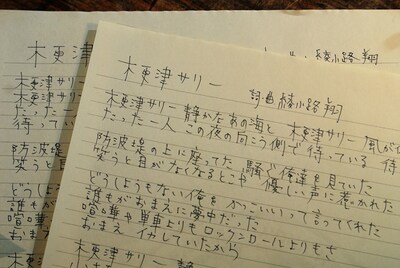 木更津サリー
詞・曲 綾小路 翔
木更津サリー 静かなあの海と 木更津サリー 風がe
たった一人 この夜の向こう側で 待っている 待
防波堤の上に座ってた 騒ぐ俺達を見ていた
笑うと目がなくなるとこや 優しい声に惹かれた
どうしようもない俺を かっこいいって言ってくれた
誰もがおまえに夢中だった
喧嘩や単車よりもロックンロールよりもさ
おまえ イカしていたから
木更津サリー 静
木更津
綾小路 翔
木更
木更
だった
待って
防波堤
笑うと
どうし
誰もが
喧嘩
おまえ
木更